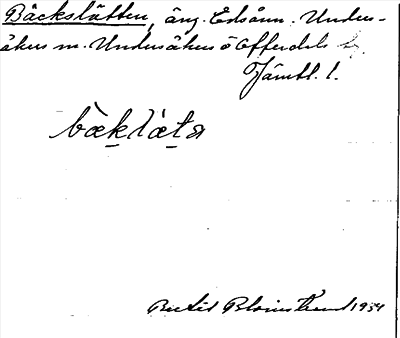 Bäckslätten, äng. Edsånn. Under-
åkers sn. Undersåkers o Offerdals
Jämtl. l.
bæklæta
Bertil Blomstrand 1934